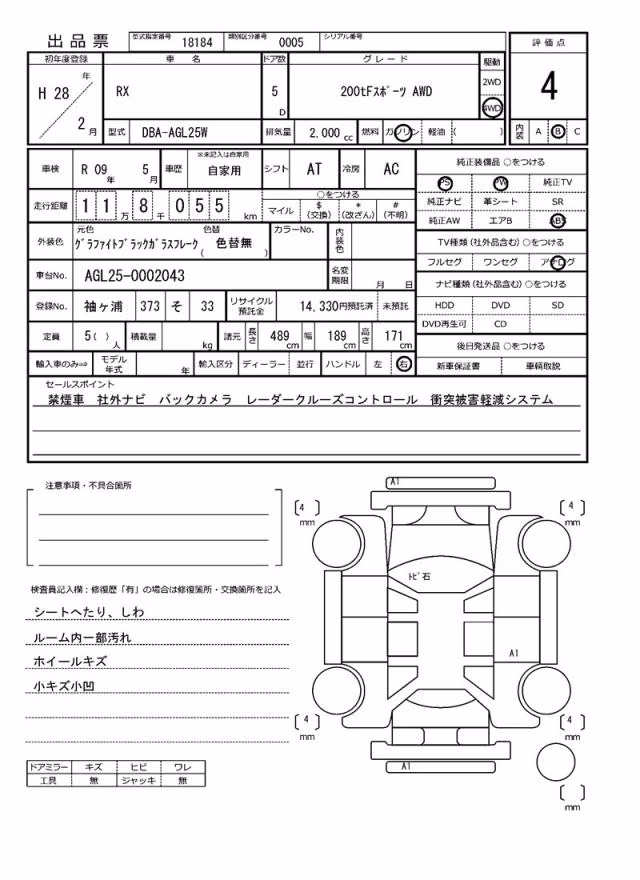 出品票 型式指定番号 18184 類別区分番号 0005 シリアル番号
評価点
4
初年度登録 車名 ドア数 グレード 駆動
H 28 年 2 月
RX
5 D
200tFスポーツ AWD
2WD
4WD
型式 DBA-AGL25W 排気量 2,000 cc 燃料 ガソリン 軽油 ( )
内装 A B C
車検 R 09 年 5 月 車歴 ※未記入は自家用 自家用 シフト AT 冷房 AC
純正装備品 ○をつける
PS PW 純正TV
純正ナビ 革シート SR
純正AW エアB ABS
走行距離 1 1 万 8 千 0 5 5 km
○をつける
マイル $(交換) *(改ざん) #(不明)
外装色 元色 グラファイトブラックガラスフレーク 色替 ( 色替無 ) カラーNo. 内装色
TV種類 (社外品含む) ○をつける
フルセグ ワンセグ アナログ
車台No. AGL25-0002043 名変期限 月 日
ナビ種類 (社外品含む) ○をつける
HDD DVD SD
DVD再生可 CD
登録No. 袖ヶ浦 373 そ 33 リサイクル預託金 14,330円預託済 未預託
定員 5( ) 人 積載量 kg 諸元 長さ 489 cm 幅 189 cm 高さ 171 cm
後日発送品 ○をつける
新車保証書 車輌取説
輸入車のみ⇒ モデル年式 年 輸入区分 ディーラー 並行 ハンドル 左 右
セールスポイント
禁煙車 社外ナビ バックカメラ レーダークルーズコントロール 衝突被害軽減システム
注意事項・不具合箇所
検査員記入欄：修復歴「有」の場合は修復箇所・交換箇所を記入
シートへたり、しわ
ルーム内一部汚れ
ホイールキズ
小キズ小凹
ドアミラー キズ ヒビ ワレ
工具 無 ジャッキ 無
A1
[ 4 ] mm
[ 4 ] mm
トビ石
A1
[ 4 ] mm
[ 4 ] mm
A1
[ ] mm